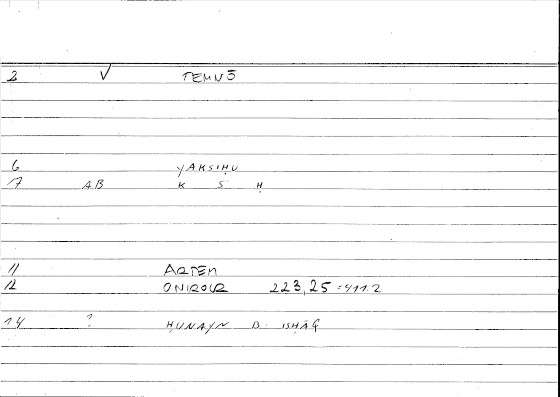 2 √ TEMNŌ
6 YAKSIḤU
7 AB K S Ḥ
11 ARTEM
12 ONIROCR 223,25 = 411.2
14 ? ḤUNAYN B. ISḤĀQ